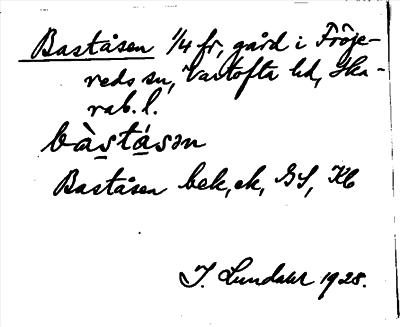 Baståsen 1/4 fr, gård i Fröje-
reds sn, Vartofta hd, Ska-
rab. l.
bàstásən
Baståsen bek, ek, GS, Kb
J. Lundahl 1928.